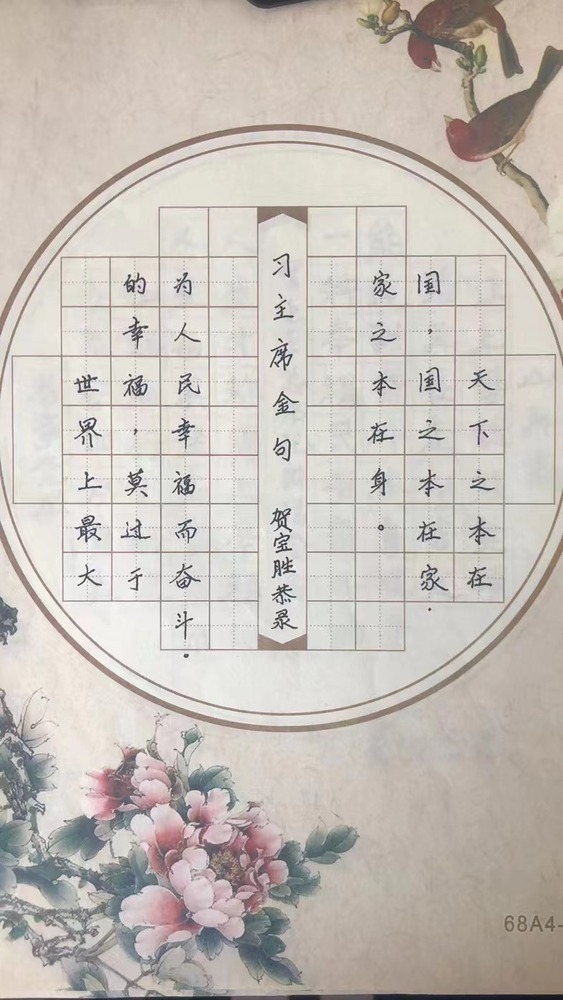 天下之本在
国，国之本在家.
家之本在身。
习主席金句 贺宝胜恭录
世界上最大
的幸福，莫过于
为人民幸福而奋斗.
68A4-